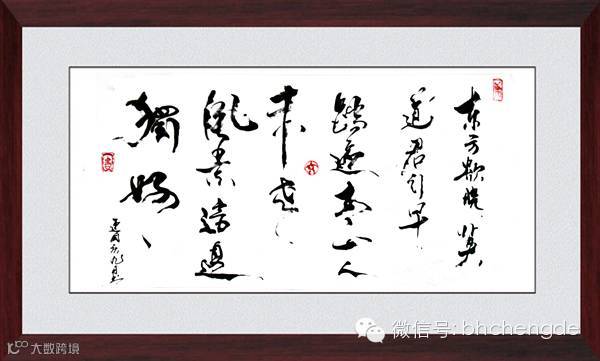 东方欲晓莫
道君行早
踏遍青山人
未老
风景这边
獨好
微信号: bhchengde
大数跨境